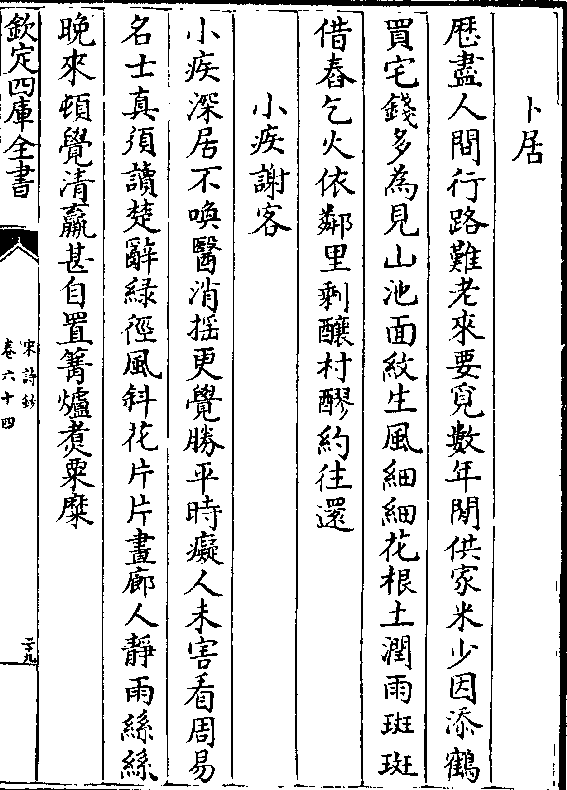 卜居
歴盡人間行路難老來要覓數年閒供家米少因添鶴
買宅錢多為見山池面紋生風細細花根土潤雨斑斑
借舂乞火依鄰里剰釀村醪約往還
小疾謝客
小疾深居不喚醫消摇更覺勝平時癡人未害看周易
名士真須讀楚辭緑徑風斜花片片畫廊人靜雨絲絲
晚來頓覺清羸甚自置篝爐煑粟糜
欽定四庫全書
宋詩鈔
卷六十四
二十九